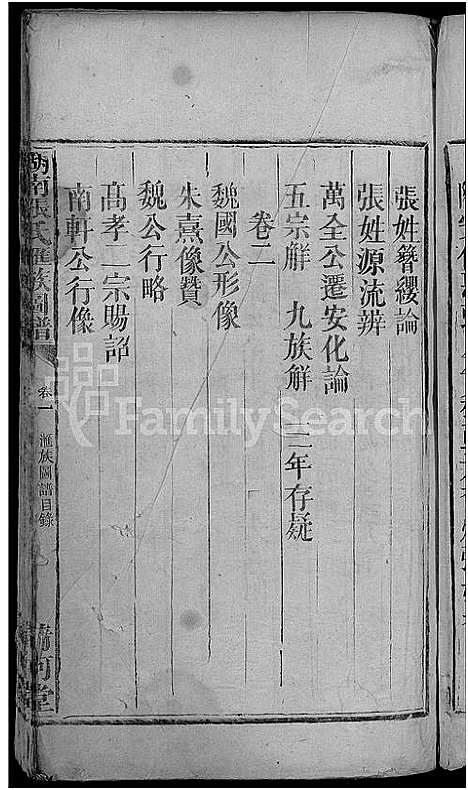 張姓簪纓論
張姓源流辨
萬全公遷安化論
五宗解 九族解 三年存疑
卷二
魏國公形像
朱熹像贊
魏公行略
高孝二宗賜詔
南軒公行像
湖南張氏滙族圖譜
卷一 滙族圖譜目錄
清河堂
FamilySearch